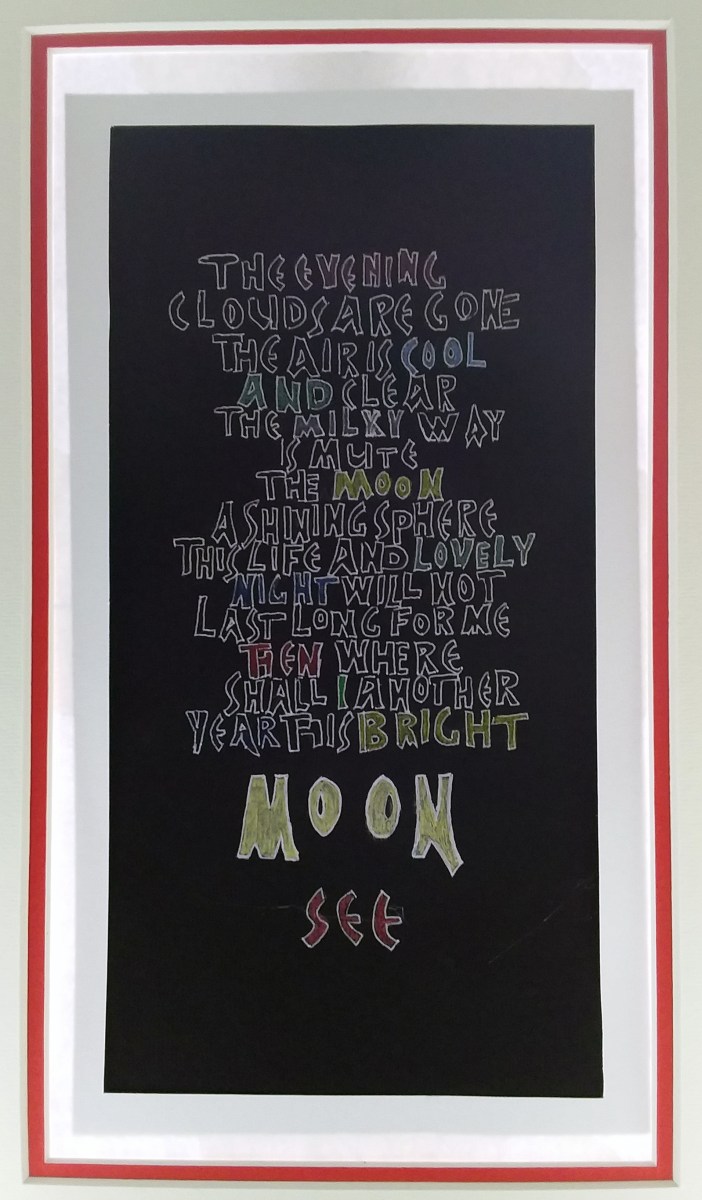 THE EVENING
CLOUDS ARE GONE
THE AIR IS COOL
AND CLEAR
THE MILKY WAY
IS MUTE
THE MOON
A SHINING SPHERE
THIS LIFE AND LOVELY
NIGHT WILL NOT
LAST LONG FOR ME
THEN WHERE
SHALL I ANOTHER
YEAR THIS BRIGHT
MOON
SEE